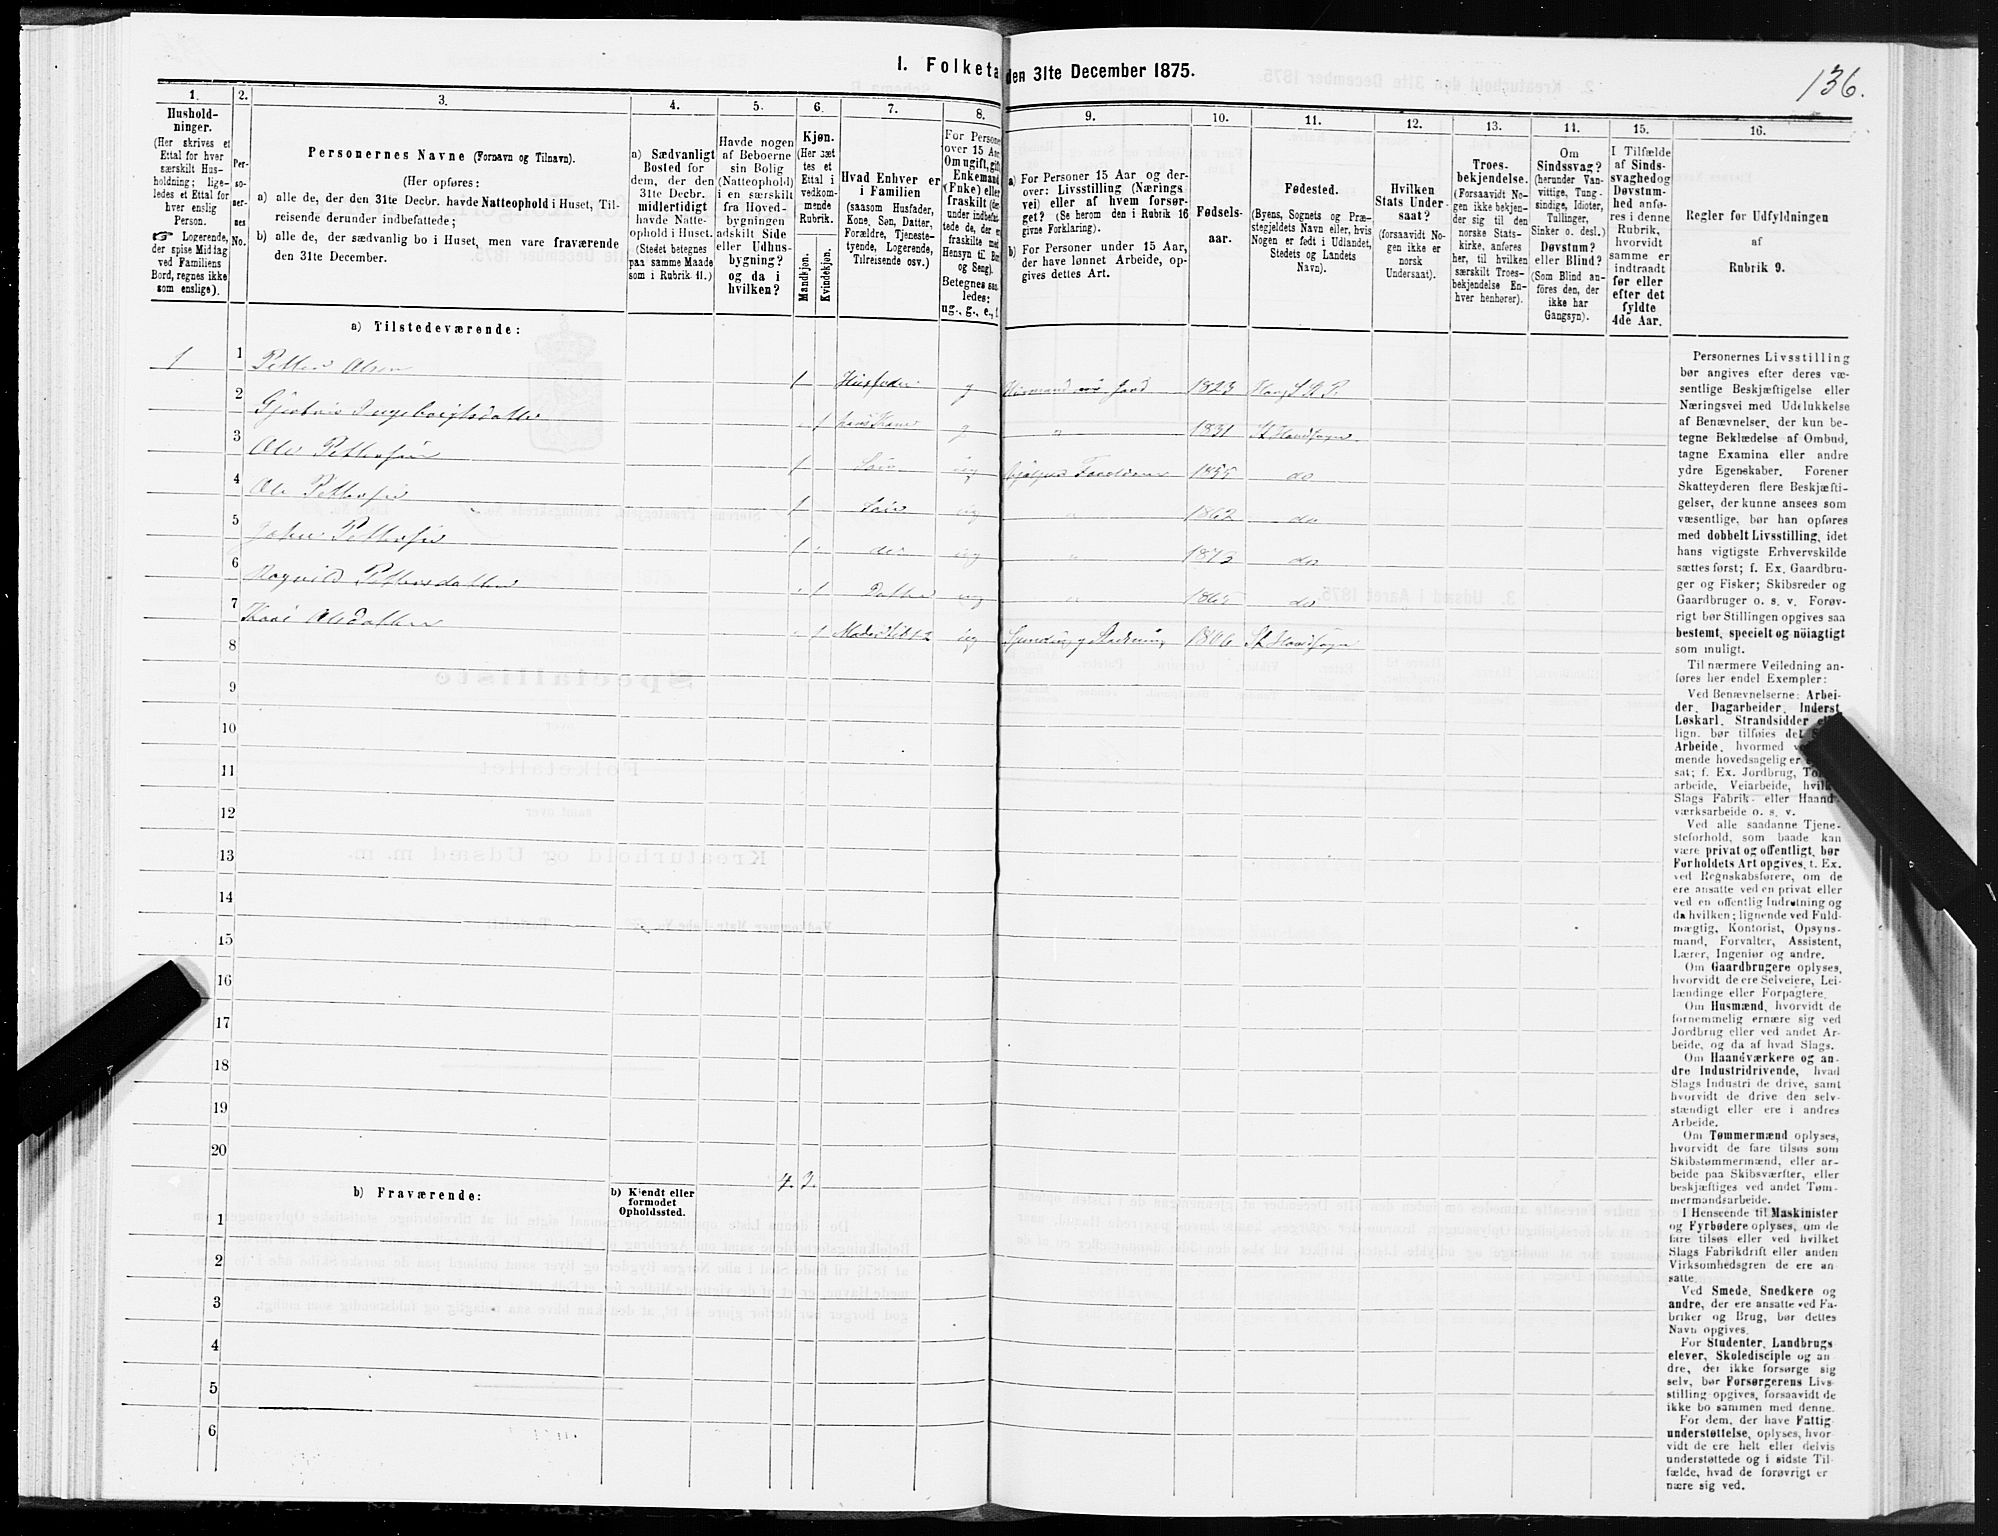 1. Folketa
den 31te December 1875.
136.
1.
Hushold-
ninger.
(Her skrives et
Ettal for hver
særskilt Hus-
holdning; lige-
ledes et Ettal for
hver enslig
Person.
☞ Logerende,
der spise Middag
ved Familiens
Bord, regnes ikke
som enslige).
2.
Per-
so-
ner-
nes
No.
3.
Personernes Navne (Fornavn og Tilnavn).
(Her opføres:
a) alle de, der den 31te Decbr. havde Natteophold i Huset, Til-
reisende derunder indbefattede;
b) alle de, der sædvanlig bo i Huset, men vare fraværende
den 31te December.
4.
a) Sædvanligt
Bosted for
dem, der den
31te Decbr.
midlertidigt
havde Natte-
ophold i Huset.
(Stedet betegnes
paa samme Maade
som i Rubrik 11.)
5.
Havde nogen
af Beboerne
sin Bolig
(Natteophold)
i en særskilt
fra Hoved-
bygningen
adskilt Side
eller Udhus-
bygning?
og da i
hvilken?
6.
Kjøn.
(Her sæt
tes et
Ettal i
vedkom-
mende
Rubrik.
Mandkjøn.
Kvindekjøn.
7.
Hvad Enhver er
i Familien
(saasom Husfader,
Kone, Søn, Datter,
Forældre, Tjeneste-
tyende, Logerende,
Tilreisende osv.)
8.
For Persone
over 15 Aar
Om ugift, gift
Enkemand
(Enke) eller
fraskilt (der
under indbefat
tede de, der er
fraskilte med
Hensyn til Bo
og Seng).
Betegnes saa
ledes:
ug., g., e., f
9.
a) For Personer 15 Aar og der-
over: Livsstilling (Nærings
vei) eller af hvem forsør-
get? (Se herom den i Rubrik 16
givne Forklaring).
b) For Personer under 15 Aar,
der have lønnet Arbeide, op-
gives dettes Art.
10.
Fødsels-
aar.
11.
Fødested.
(Byens, Sognets og Præ-
stegjeldets Navn eller, hvis
Nogen er født i Udlandet,
Stedets og Landets
Navn).
12.
Hvilken
Stats Under-
saat?
(forsaavidt No-
gen ikke er
norsk
Undersaat).
13.
Troes-
bekjendelse.
(Forsaavidt No-
gen ikke bekjen-
der sig til den
norske Stats-
kirke, anføres
her, til hvilken
særskilt Troes-
bekjendelse En-
hver henhører).
14.
Om
Sindssvag?
(herunder Van-
vittige, Tung-
sindige, Idioter,
Tullinger,
Sinker o. desl.)
Døvstum?
eller Blind?
(Som Blind an-
føres den, der
ikke har
Gangsyn).
15.
I Tilfælde
af Sinds-
svaghed og
Døvstum-
hed anfø-
res i denne
Rubrik,
hvorvidt
samme er
indtraadt
før eller
efter det
fyldte
4de Aar.
16.
Regler før Udfyldningen
af
Rubrik 9.
a) Tilstedeværende:
1 1 Petter Olsen 1 Husfader g Husmand Jord 1823
2 Ingeborigtsdatter 1 g " 1831
3 Ole Pettersen 1 Søn ug Forældrene 1855 do
4 Ole Pettersen 1 Søn ug " 1862 do
5 Johan Pettersen 1 do " 1873 do
6 Pettersdatter 1 Datter ug " 1865 do
7 Olsdatter 1 ug 1806
8
9
10
11
12
13
14
15
16
17
18
19
20
4. 3.
b) Fraværende:
b) Kjendt eller
formodet
Opholdssted.
1
2
3
4
5
6
Personernes Livsstilling
bør angives efter deres væ-
sentlige Beskjæftigelse eller
Næringsvei med Udelukkelse
af Benævnelser, der kun be-
tegne Beklædelse af Ombud,
tagne Examina eller andre
ydre Egenskaber. Forener
Skatteyderen flere Beskjæfti-
gelser, der kunne ansees som
væsentlige, bør han opføres
med dobbelt Livsstilling, idet
hans vigtigste Erhvervskilde
sættes først; f. Ex. Gaardbru-
ger og Fisker; Skibsreder og
Gaardbruger o. s. v. Forøv-
rigt bør Stillingen opgives saa
bestemt, specielt og nöiagtigt
som muligt.
Til nærmere Veiledning an-
føres her endel Exempler:
Ved Benævnelserne: Arbei-
der, Dagarbeider, Inderst,
Løskarl, Strandsidder
lign. bør tilføies det
Arbeide, hvormed
mende hovedsagelig er
sat; f. Ex. Jordbrug,
arbeide, Veiarbeide,
Slags Fabrik- eller Haand-
værksarbeide o. s. v.
Ved alle saadanne Tjene-
steforhold, som baade kan
være privat og offentligt, bør
Forholdets Art opgives, t. Ex.
ved Regnskabsførere, om de
ere ansatte ved en privat eller
ved en offentlig Indretning og
da hvilken; lignende ved Fuld-
mægtig, Kontorist, Opsyns-
mand, Forvalter, Assistent,
Lærer, Ingeniør og andre.
Om Gaardbrugere oplyses,
hvorvidt de ere Selveiere, Lei-
lændinge eller Forpagtere.
Om Husmænd, hvorvidt de
fornemmelig ernære sig ved
Jordbrug eller ved andet Ar-
beide, og da af hvad Slags.
Om Haandværkere og an-
dre Industridrivende, hvad
Slags Industri de drive, samt
hvorvidt de drive den selv-
stændigt eller ere i andres
Arbeide.
Om Tømmermænd oplyses,
hvorvidt de fare tilsøs som
Skibstømmermænd, eller ar-
beide paa Skibsværfter, eller
beskjæftiges ved andet Tøm-
mermandsarbeide.
I Henseende til Maskinister
og Fyrbødere oplyses, om de
fare tilsøs eller ved hvilket
Slags Fabrikdrift eller anden
Virksomhedsgren de ere an-
satte.
Ved Smede, Snedkere og
andre, der ere ansatte ved Fa-
briker og Brug, bør dettes
Navn opgives.
For Studenter, Landbrugs
elever, Skoledisciple og an
dre, der ikke forsørge sig
selv, bør Forsørgerens Livs-
stilling opgives, forsaavidt de
ikke bo sammen med denne.
For dem, der have Fattig
understøttelse, oplyses, hvor-
vidt de ere helt eller delvis
understøttede og i sidste Til-
fælde, hvad de forøvrigt er
nære sig ved.